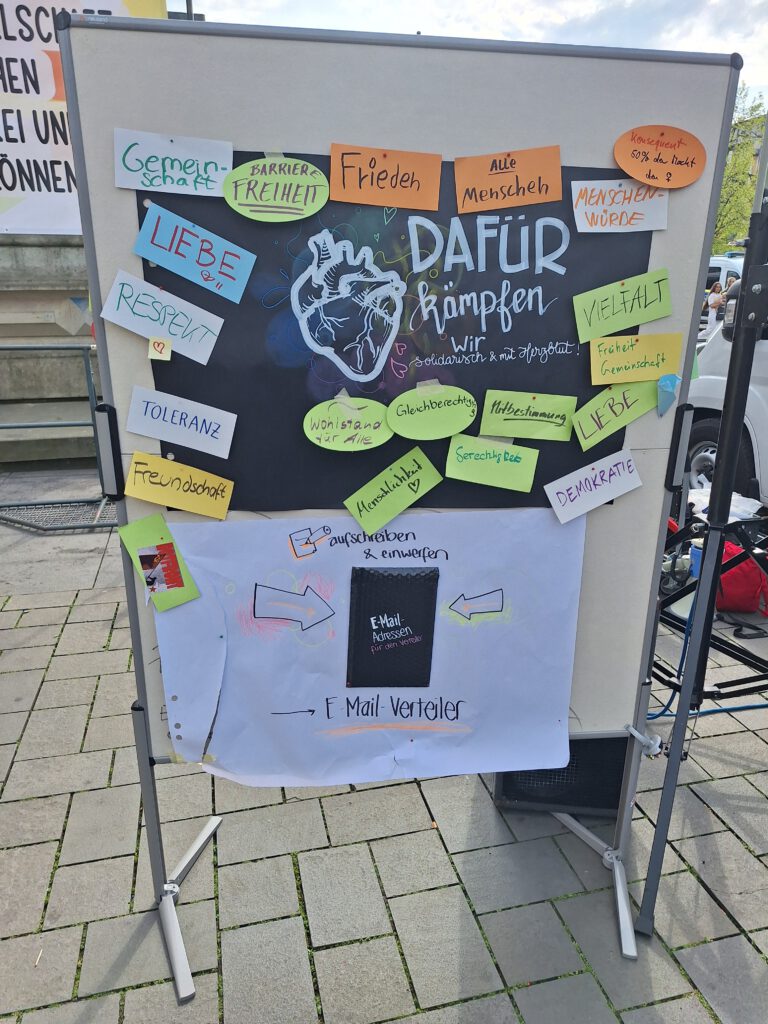 LSCHAFT
HEN
EI UN
ÖNNEN
Gemein-
schaft
BARRIERE
FREIHEIT
Frieden
ALLE
Menschen
Konsequent
50% der Macht
den ♀
MENSCHEN-
WÜRDE
LIEBE
DAFÜR
kämpfen
Wir
solidarisch & mit Herzblut!
RESPEKT
VIELFALT
Freiheit
Gemeinschaft
TOLERANZ
Wohlstand
für Alle
Gleichberechtigg
Mitbestimmung
LIEBE
Freundschaft
Menschlichkeit
Gerechtigkeit
DEMOKRATIE
aufschreiben
& einwerfen
E-Mail-
Adressen
für den Verteiler
→ E-Mail-Verteiler